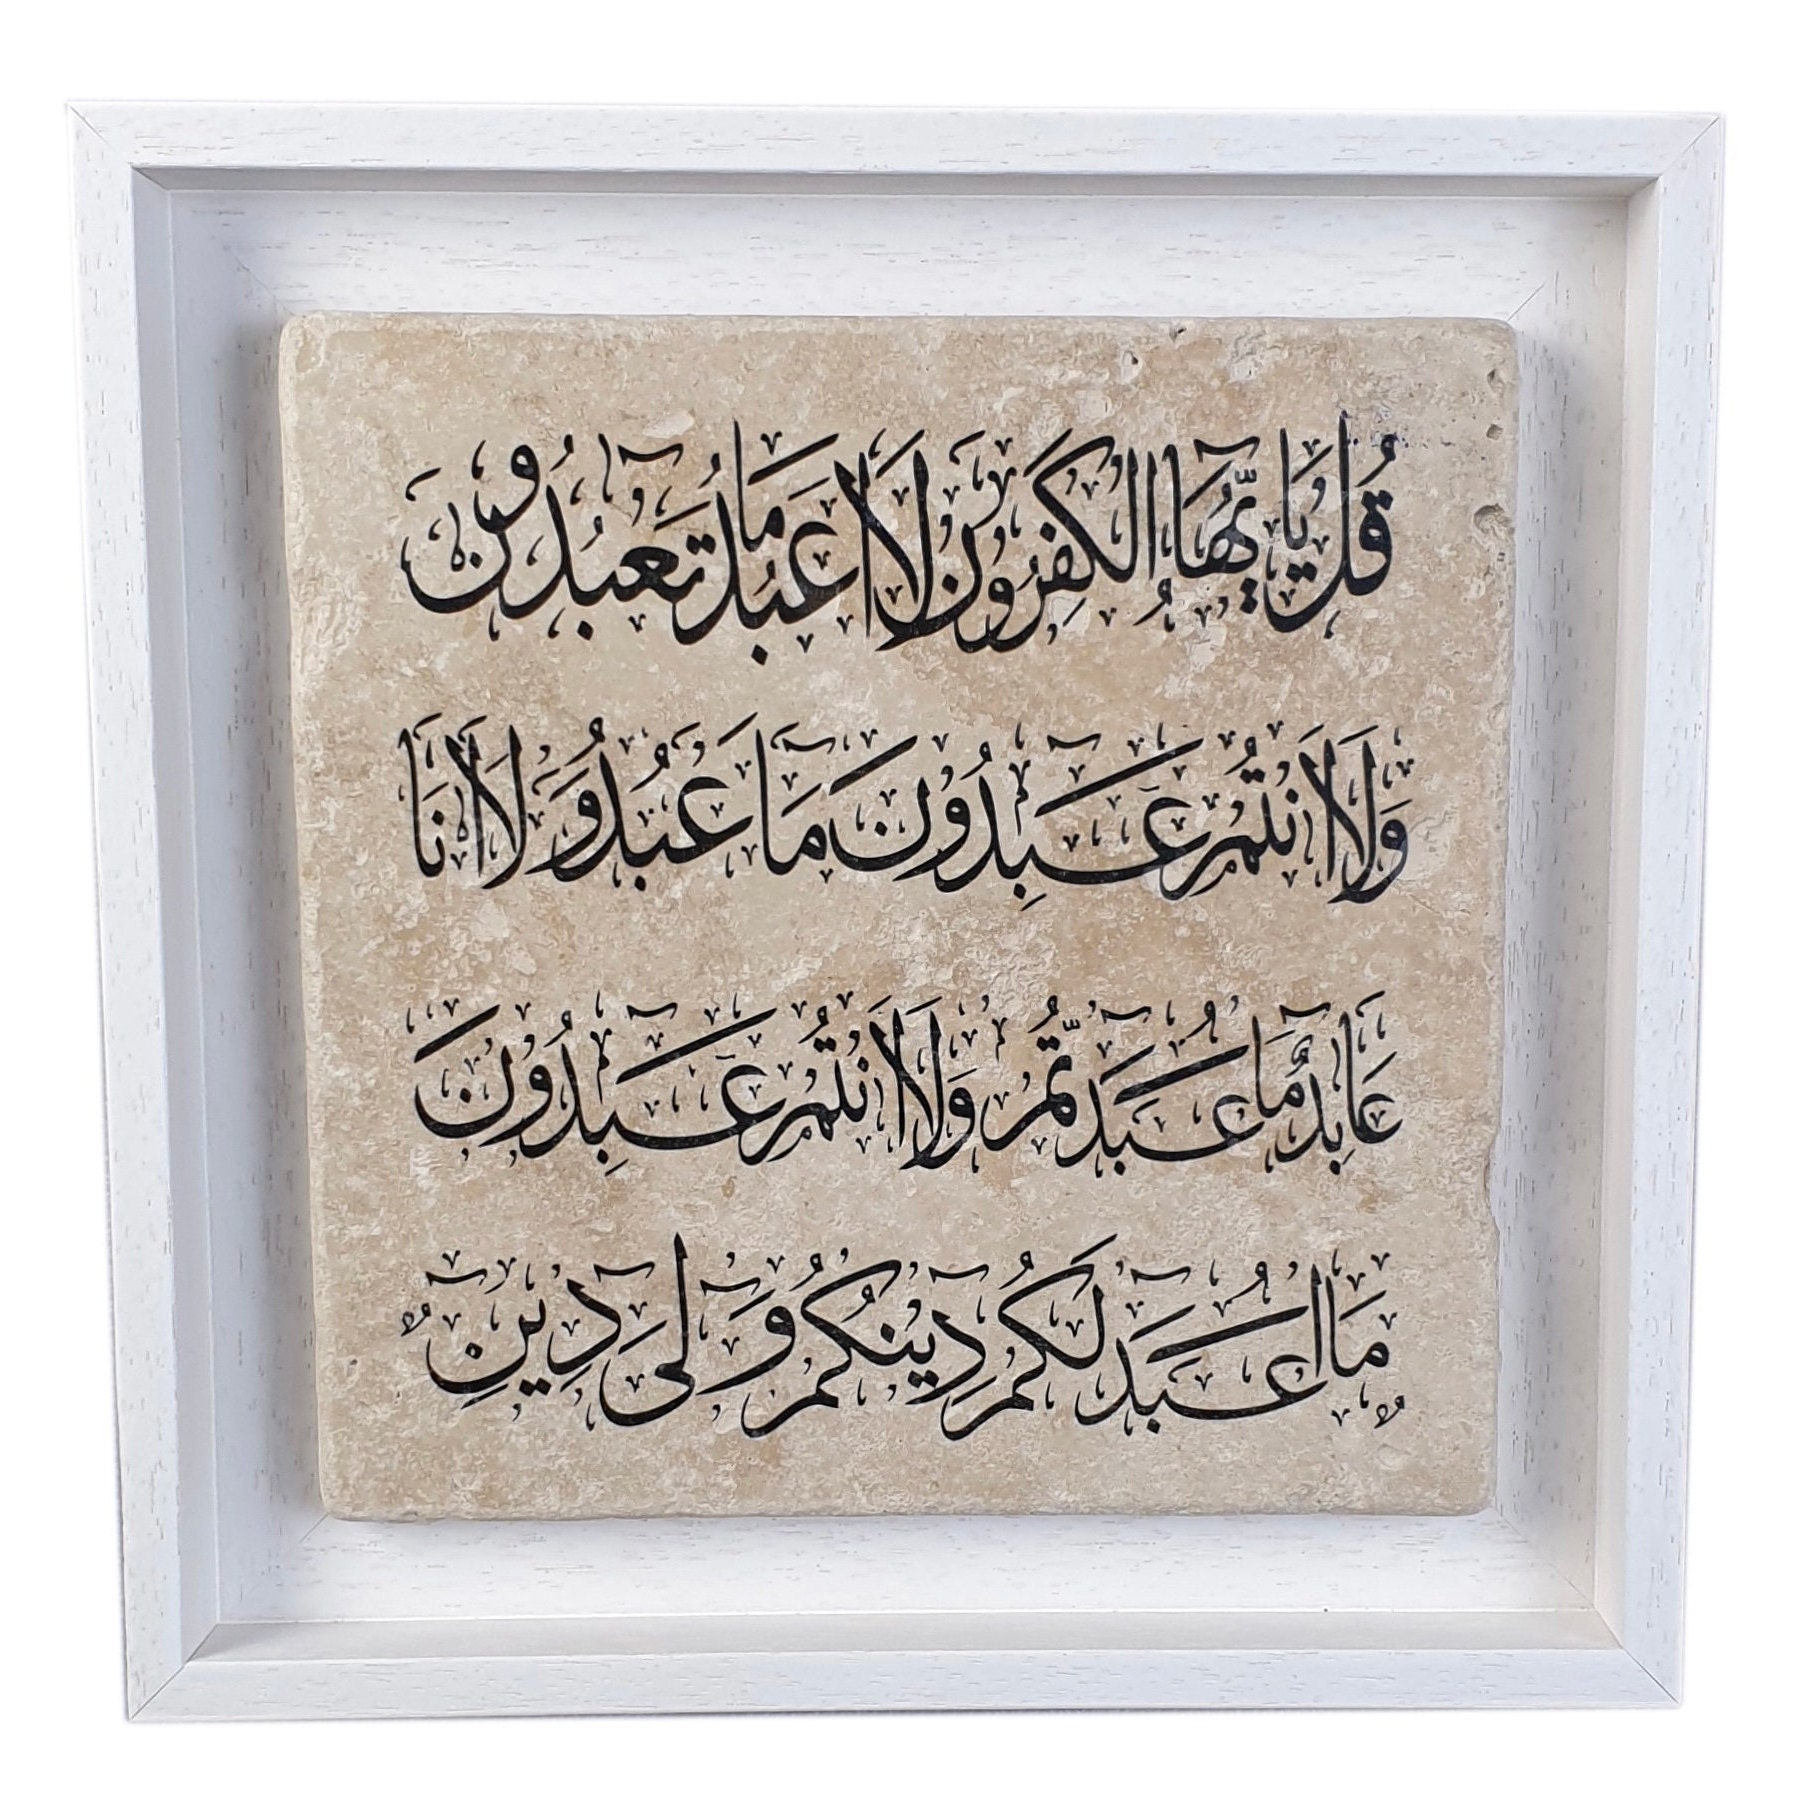 قُلْ يَا أَيُّهَا الْكٰفِرُونَ لَا أَعْبُدُ مَا تَعْبُدُونَ
وَلَا أَنْتُمْ عٰبِدُونَ مَا أَعْبُدُ وَلَا أَنَا
عَابِدٌ مَا عَبَدْتُمْ وَلَا أَنْتُمْ عٰبِدُونَ
مَا أَعْبُدُ لَكُمْ دِينُكُمْ وَلِىَ دِينِ